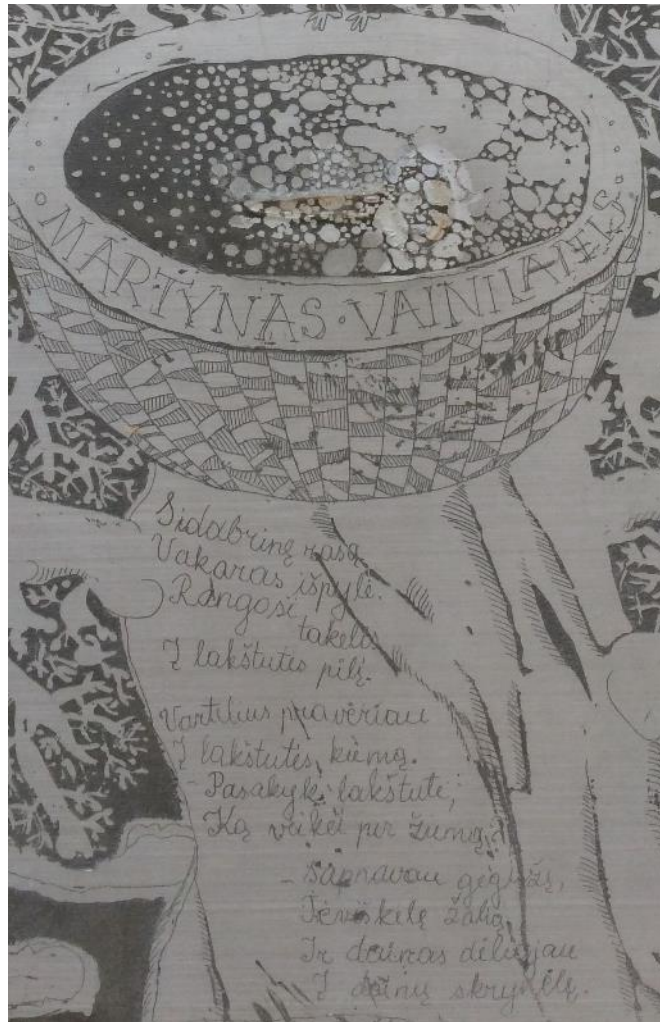 MARTYNAS · VAINILAITIS
Sidabrinę rasą
Vakaras išpylė.
Rangosi
takelis
Į lakštutės pilį.
Vartelius pravėriau
Į lakštutės kiemą.
– Pasakyk, lakštute,
Ką veikei per žiemą?
– Sapnavau gegužę,
Tėviškėlę žalią
Ir dainas dėliojau
Į dainų skrynelę.